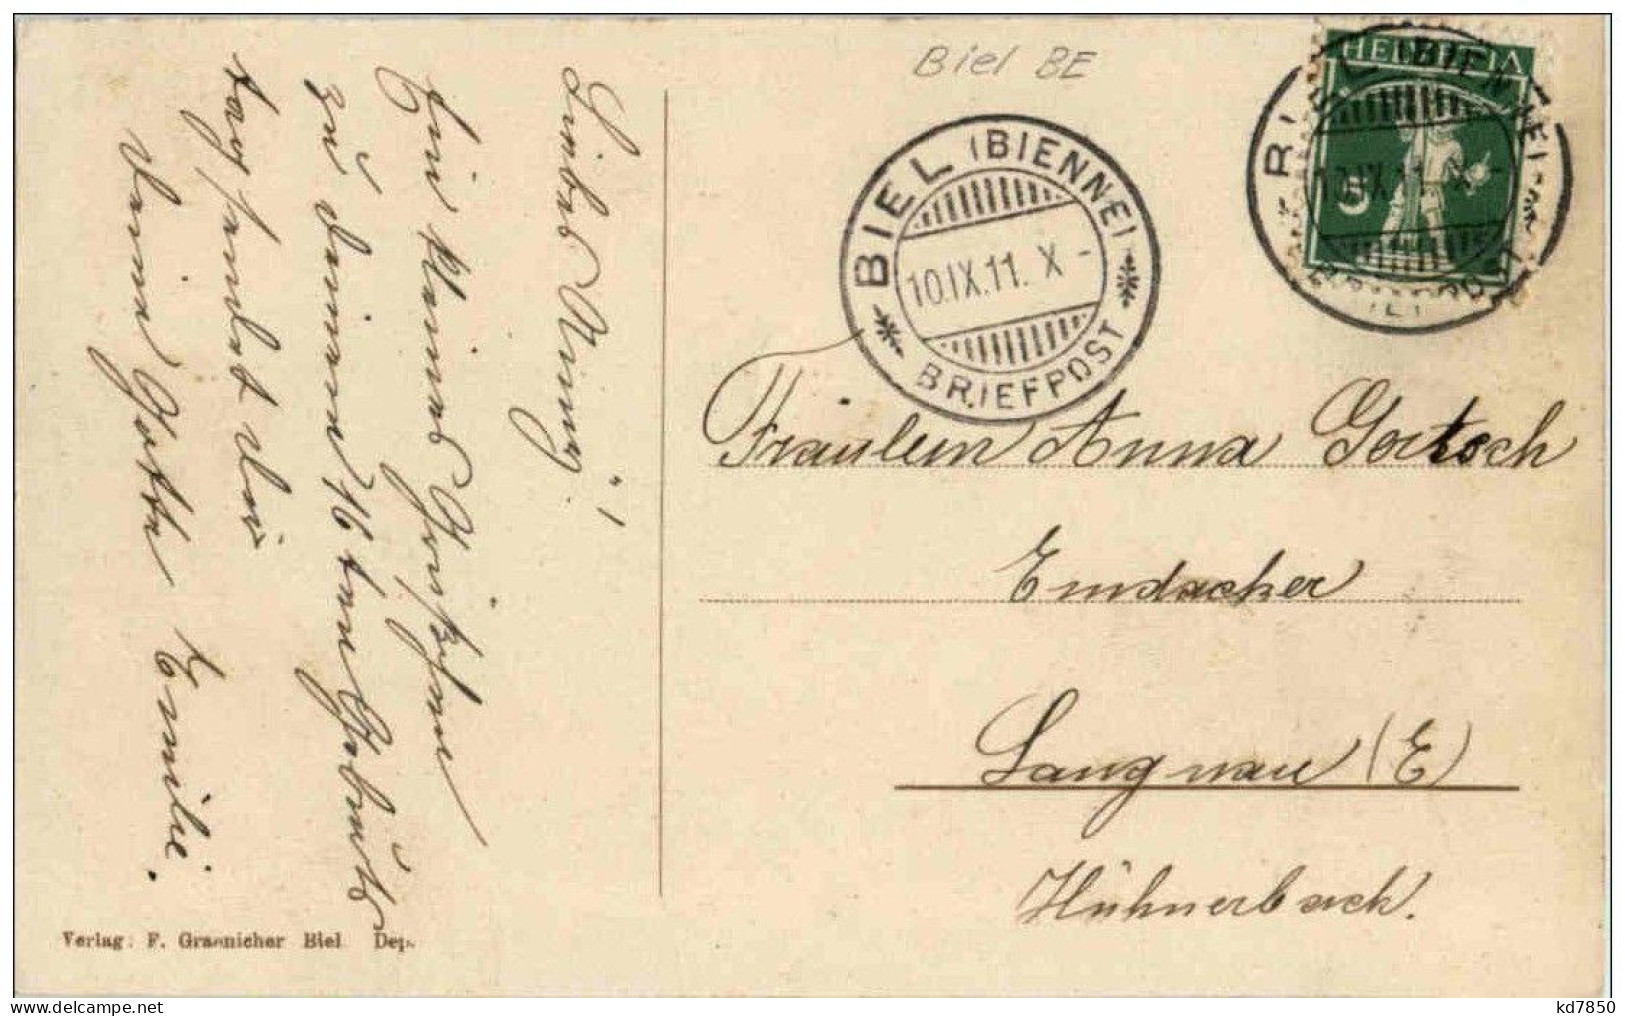 Biel BE
HELVETIA
5
BIEL (BIENNE)
10.IX.11. X -
BRIEFPOST
BIEL (BIENNE)
10.IX.11. X -
BRIEFPOST
Liebes
Ein kleines Grüsschen
zu deinem 16ten Geburts
tag sendet dir
Deine Gotte Emilie.
Fräulein Anna
Emdacher
Langnau (E)
Hühnerbach.
Verlag: F. Graenicher Biel Dep.
kd7850